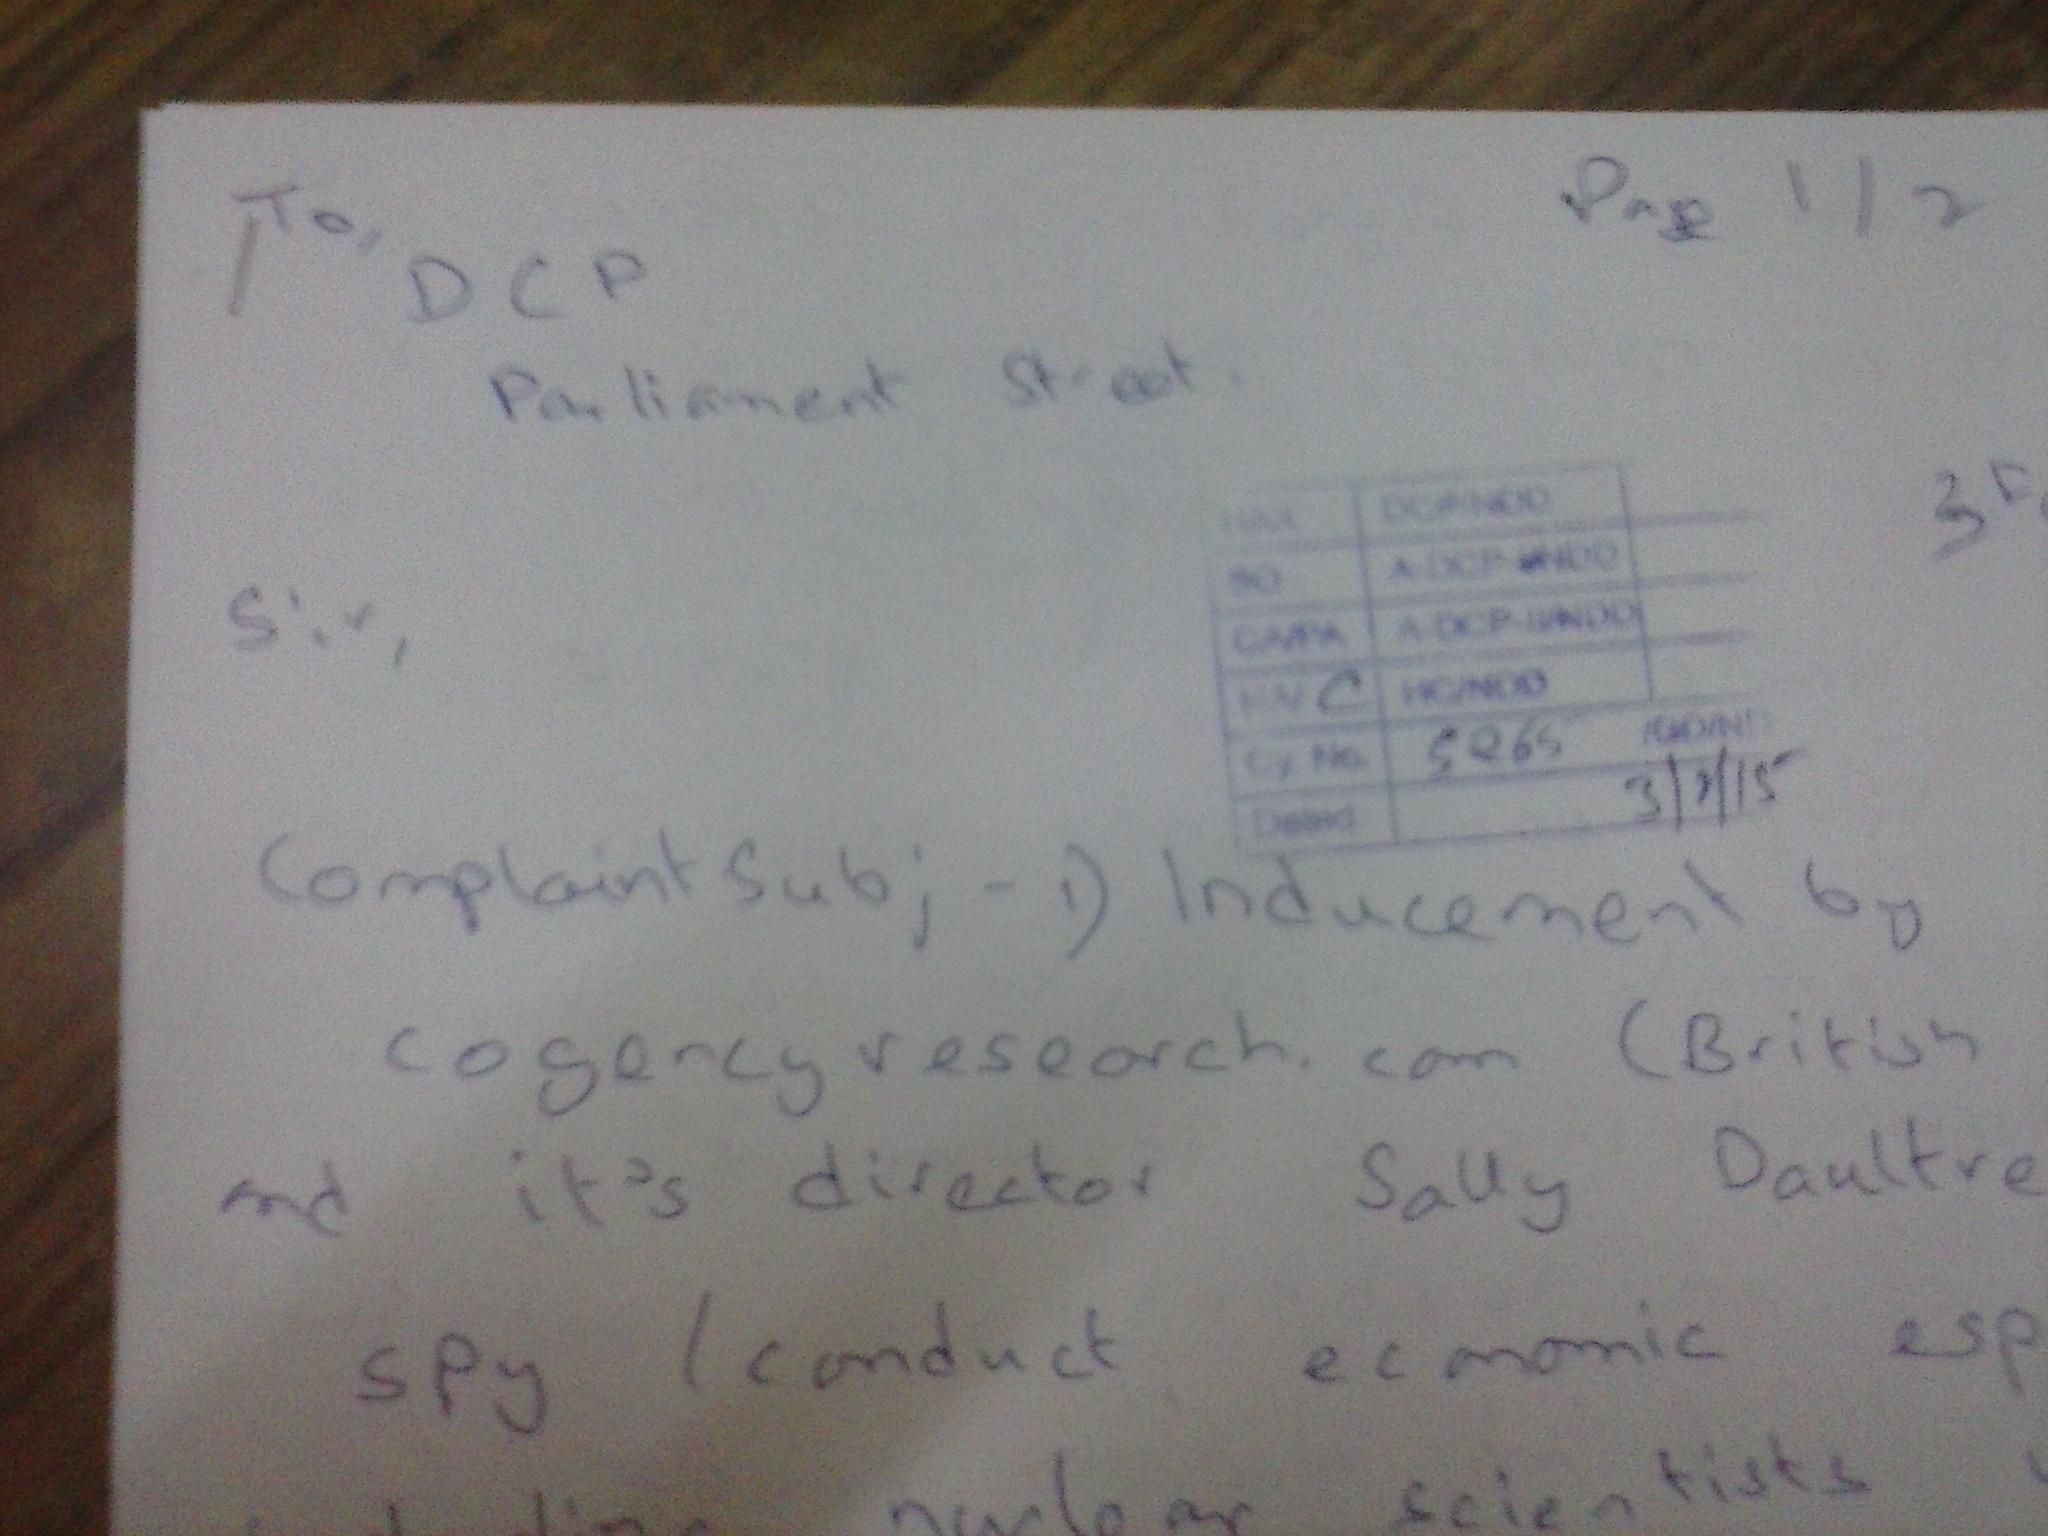 To,
Page 1/2
DCP
Parliament Street.
3 F
Sir,
DCP/NDD
SO A-DCP-I/NDD
CA/PA A-DCP-II/NDD
C HG/NDD
Cy No. 5265
Dated 3/2/15
Complaint Subj - 1) Inducement by
cogencyresearch.com (British
and it's director Sally Daultre
spy / conduct economic esp
nuclear scientists